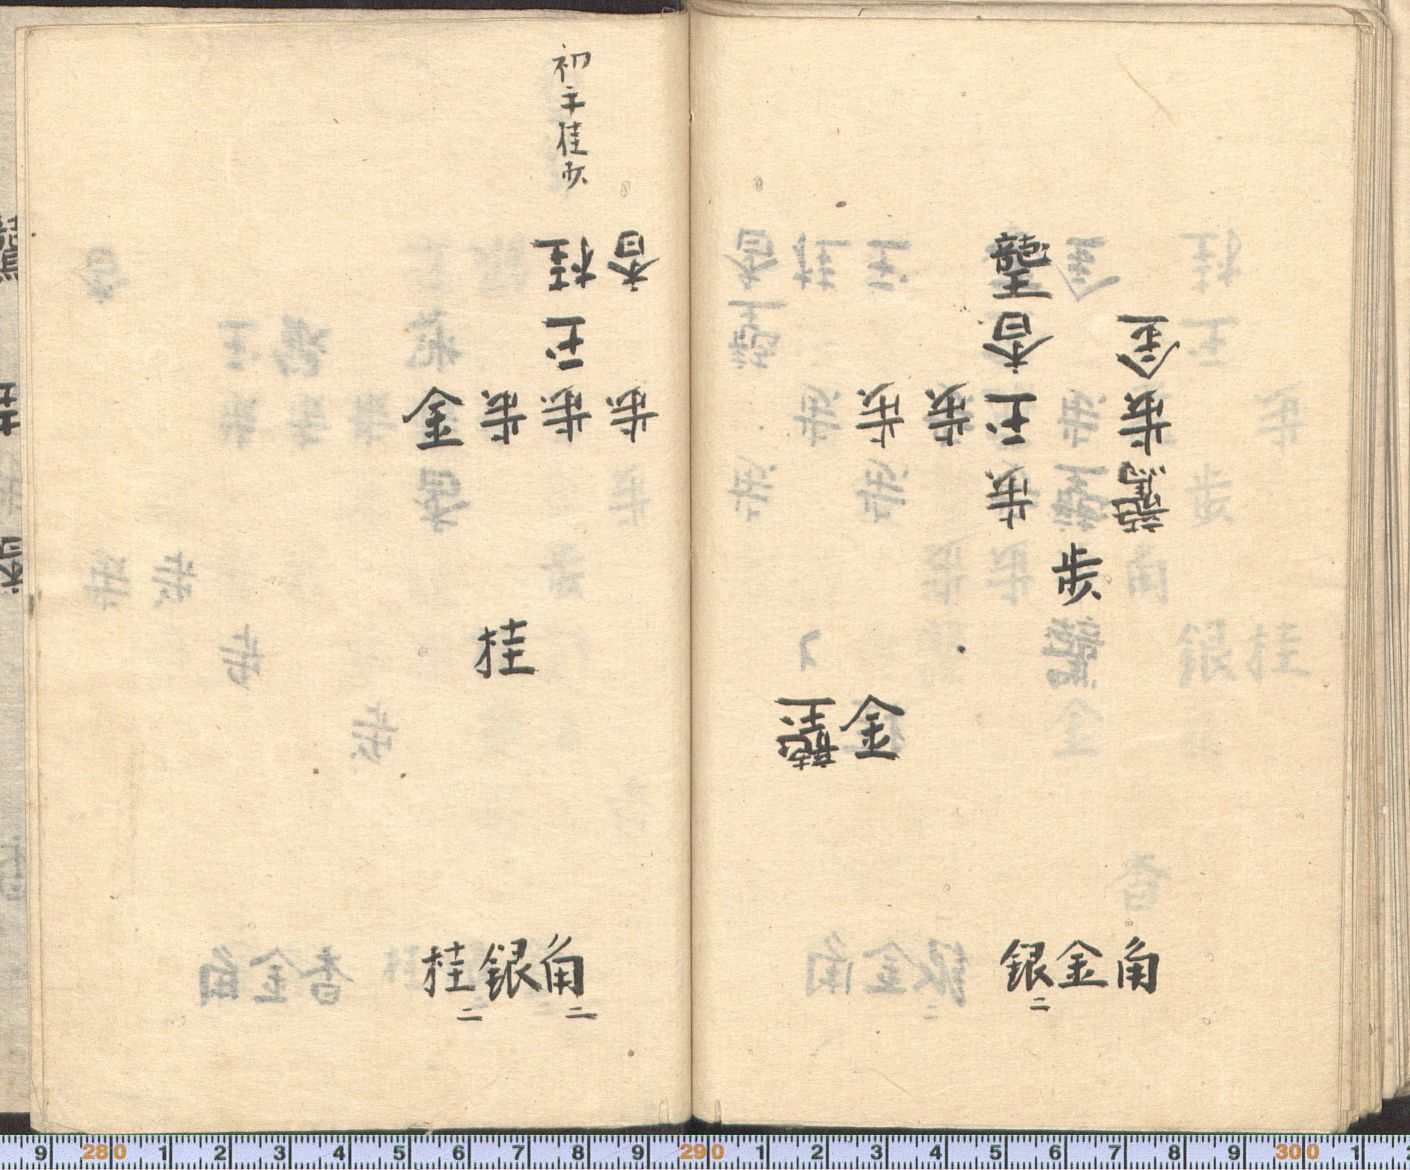 龍王
金 香
歩 玉 歩 歩
龍馬 歩
歩
金 龍王
角金銀二
初手桂歩
香 桂
玉
歩 歩 歩 金
桂
角二銀桂二
280 1 2 3 4 5 6 7 8 9 290 1 2 3 4 5 6 7 8 9 300 1